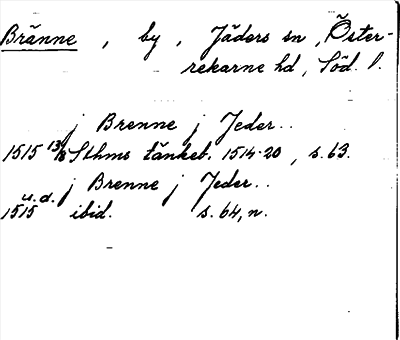 Bränne, by, Jäders sn, Öster-
rekarne hd, Söd. l.
j Brenne j Jeder..
1515 13/8 Sthms tänkeb. 1514-20, s. 63.
j Brenne j Jeder..
1515 u.d. ibid. s. 64, n.